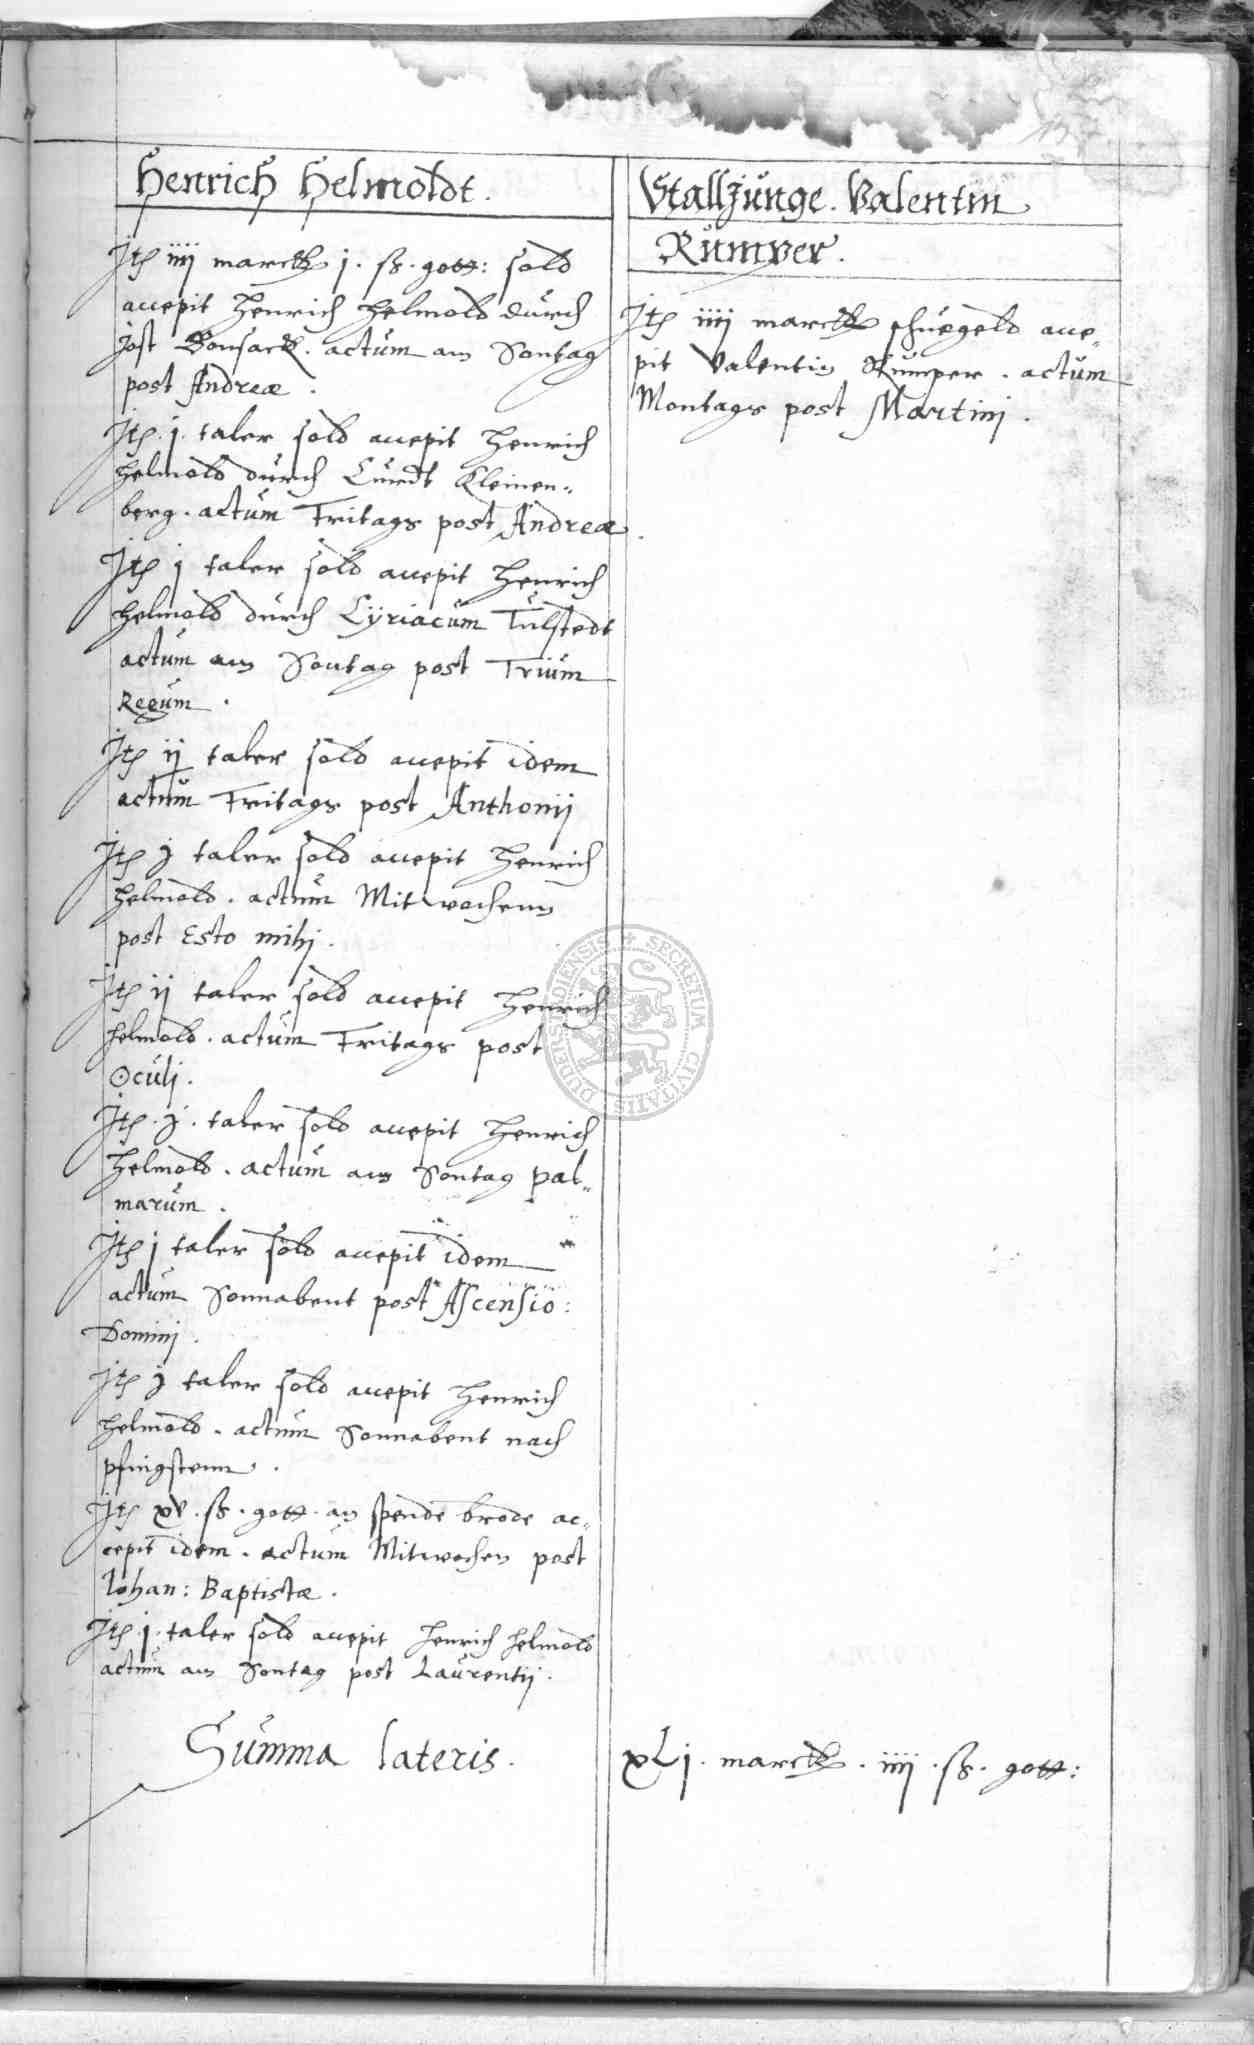 Henrich Helmoldt.
Jtem iiij marck j. ß. gott: sold
accepit Henrich Helmold durch
Jost Bonsack. actum am Sontag
post Andreæ.
Jtem. j. taler sold accepit Henrich
Helmold durch Curdt Kleinen=
berg. actum Fritags post Andreæ.
Jtem j taler sold accepit Henrich
Helmold durch Cyriacum Tulstedt
actum am Sontag post Trium
Regum.
Jtem ij taler sold accepit idem
actum Fritags post Anthonij
Jtem j taler sold accepit Henrich
Helmold. actum Mitwochenn
post Esto mihj.
Jtem ij taler sold accepit Henrich
Helmold. actum Fritags post
Oculj.
Jtem. j. taler sold accepit Henrich
Helmold. actum am Sontag pal=
marum.
Jtem j taler sold accepit idem
actum Sonnabent post Ascensio:
Dominj.
Jtem j taler sold accepit Henrich
Helmold. actum Sonnabent nach
pfingstenn.
Jtem xv. ß. gott. an spende brode ac=
cepit idem. actum Mitwochen post
Iohan: Baptistæ.
Jtem. j. taler sold accepit Henrich Helmold
actum am Sontag post Laurentij.
Stalljunge. Valentin
Rumper.
Jtem iiij marck schuegeld acce=
pit Valentin Rumper. actum
Montags post Martinj.
Summa lateris. xLj. marck. iiij. ß. gott:
SECRETUM CIVITATIS DUDERSTADIENSIS